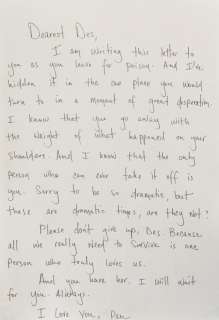 Dearest Des,
I am writing this letter to
you as you leave for prison. And I've
hidden it in the one place you would
turn to in a moment of great desperation.
I know that you go away with
the weight of what happened on your
shoulders. And I know that the only
person who can ever take it off is
you. Sorry to be so dramatic, but
these are dramatic times, are they not?
Please don't give up, Des. Because
all we really need to survive is one
person who truly loves us.
And you have her. I will wait
for you. Always.
I Love You, Pen